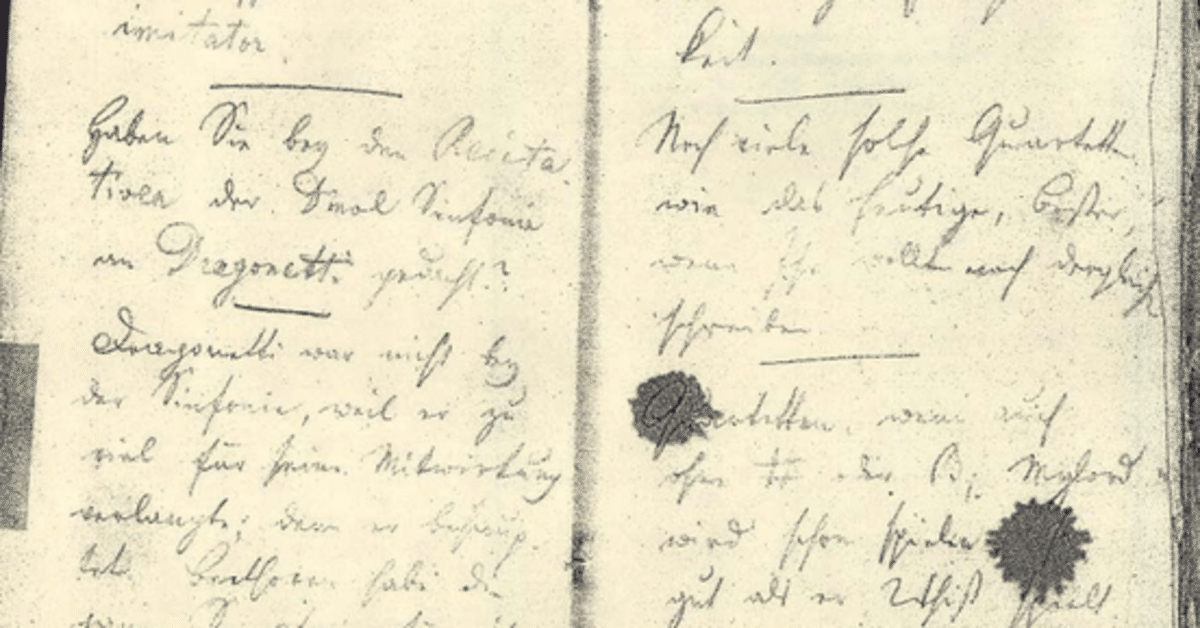 imitator.
Haben Sie bey den Recita
tiven der Dmol Sinfonie
an Dragonetti gedacht?
Dragonetti war nicht bey
der Sinfonie, weil er zu
viel für seine Mitwirkung
verlangte; denn er behaup-
tet Beethoven habe die
keit.
Noch viele solche Quartette
wie das heutige, bester,
wenn Ihr wollt noch dergleich
schreiben
Quartetten, wenn auch
ohne # oder B; Mylord
wird schon spielen
gut als er Whist spielt